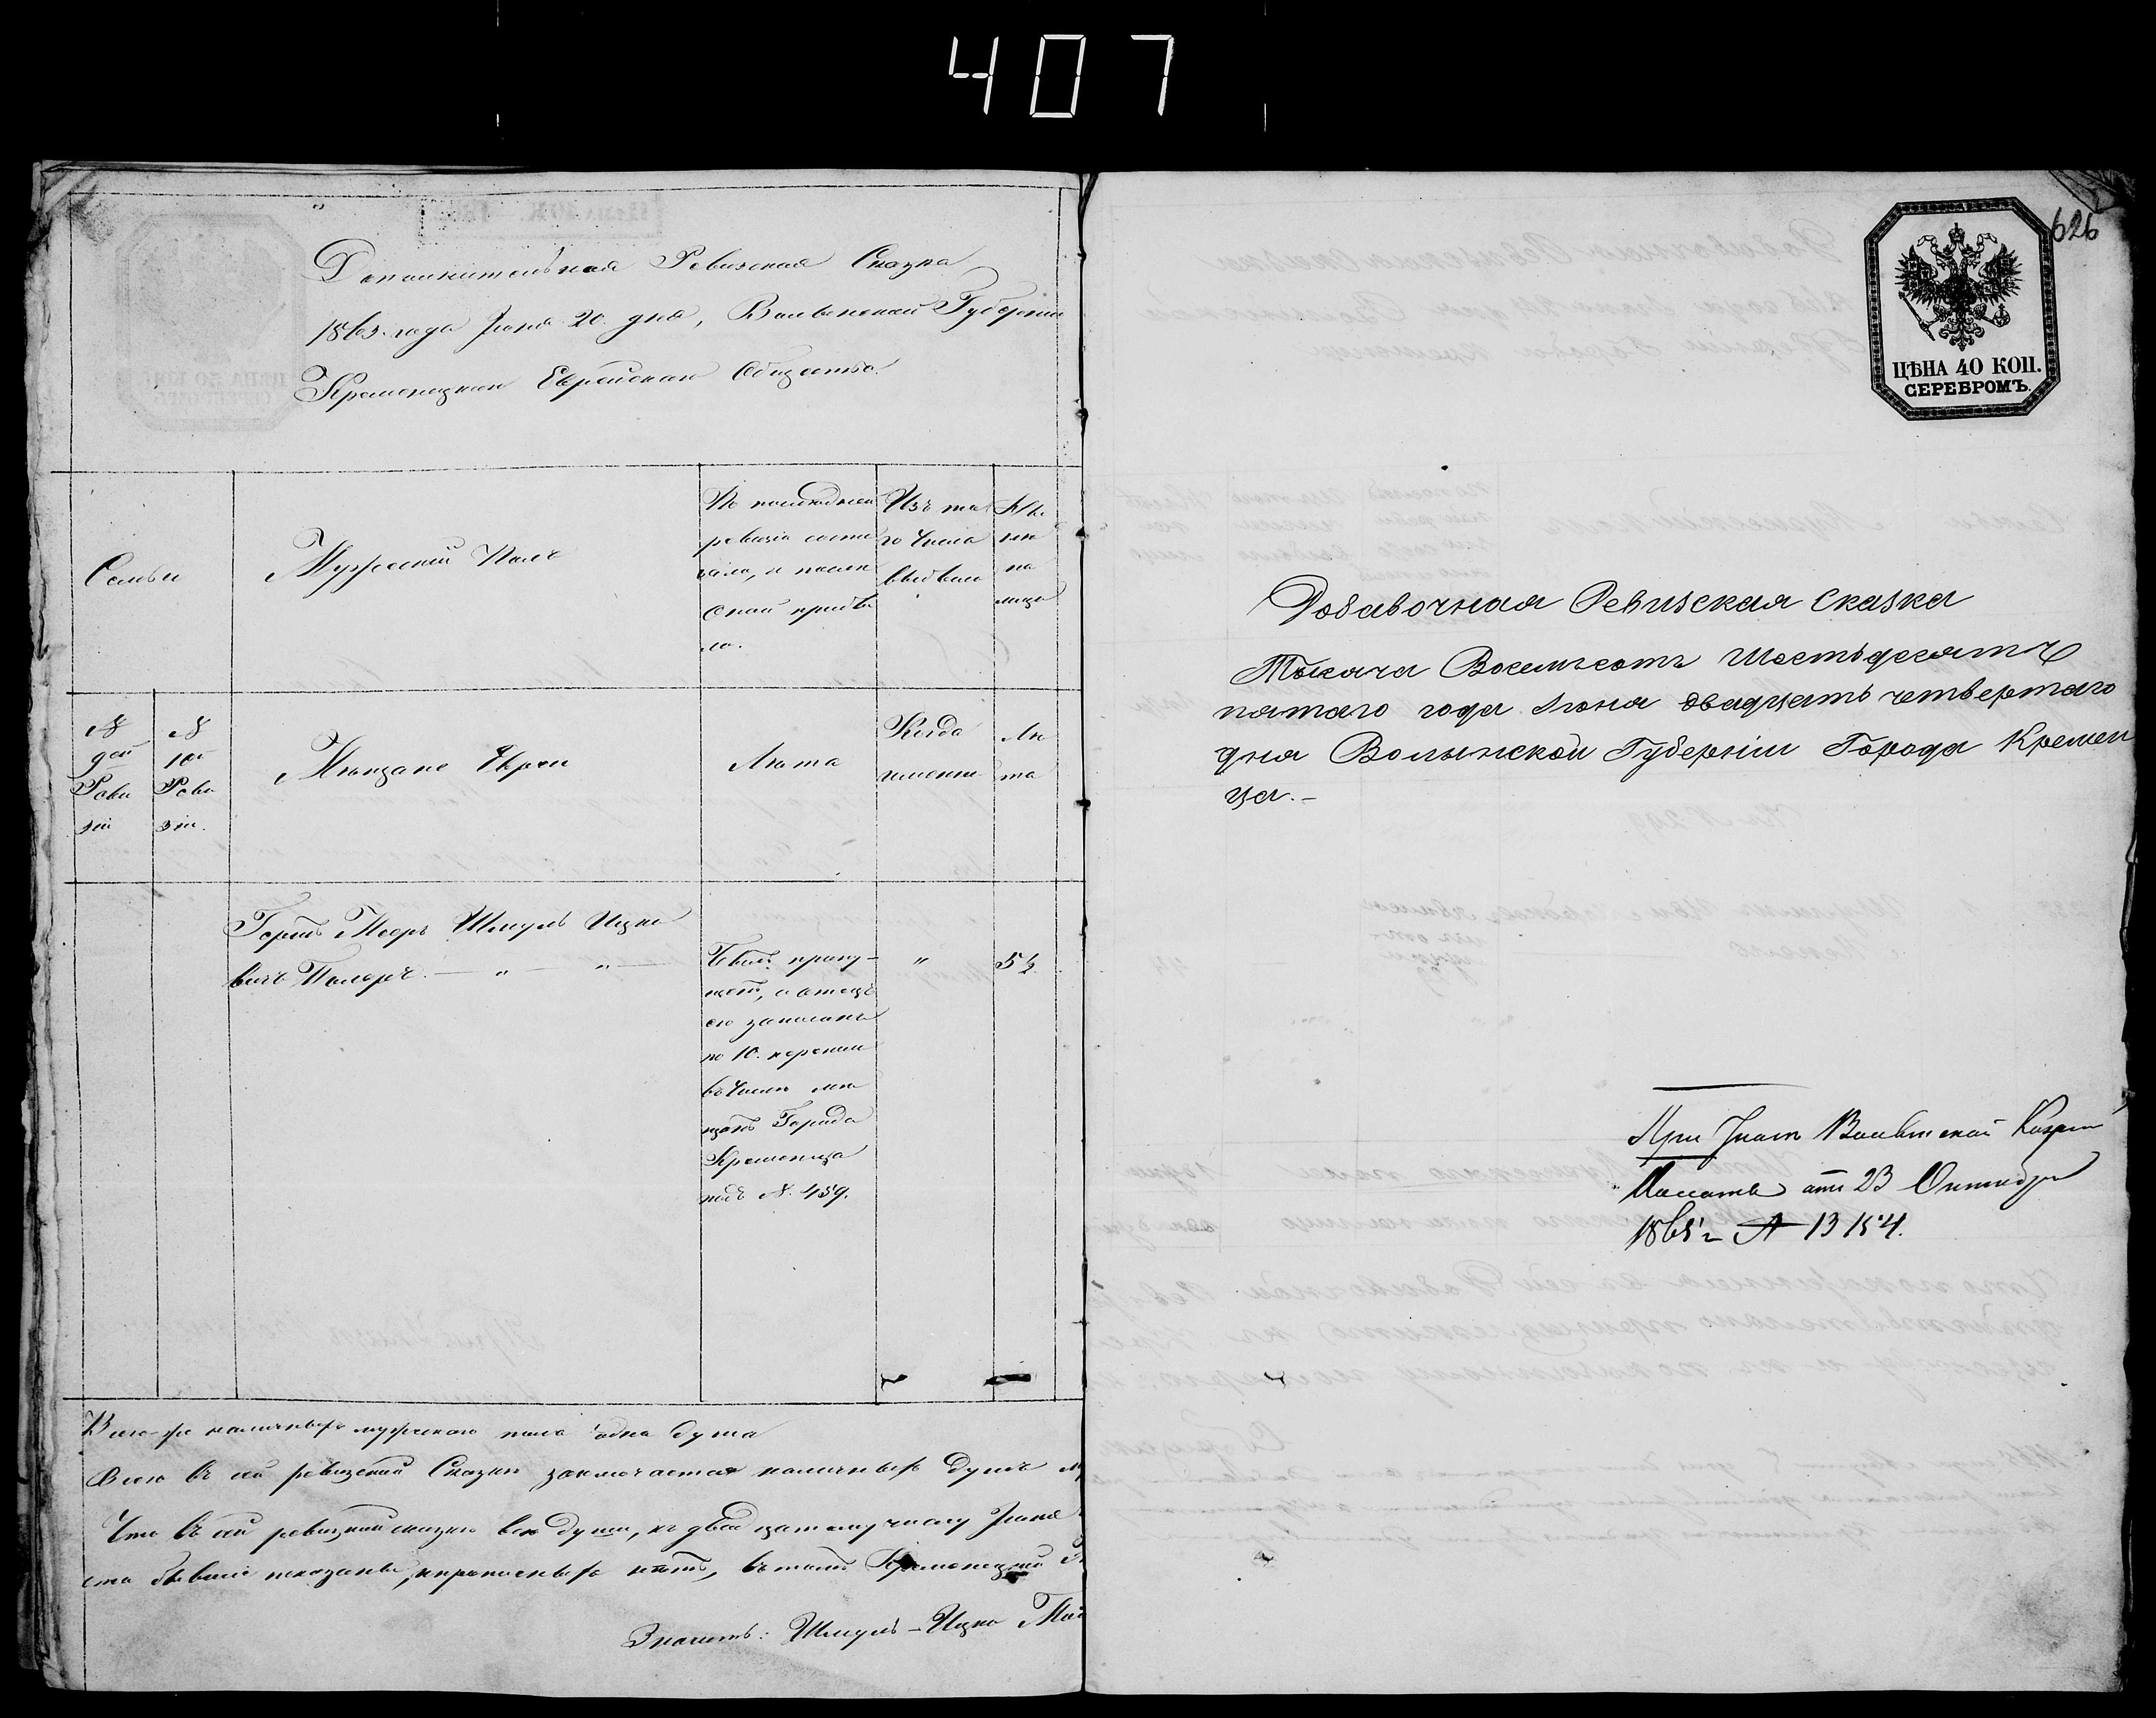 407
Дополнительная Ревизская Сказка
1865 года Іюня 20 дня, Волынской Губерніи
Кременецкаго Еврейскаго Общества.
Семьи
Мужескій Полъ
По последней
ревизіи состо
яло, и после
оной прибы
ло.
Изъ то
го числа
выбыло
Ны
не
на
лицо
№
9ой
Реви
зіи
№
10й
Реви
зіи.
Мещане Евреи
Лета
Когда
именно
Ле
та
Мееръ Шмуль Ицко
вичъ
Былъ пропу-
щенъ, а отецъ
его записанъ
по 10. переписи
въ числе ме
щанъ Города
Кременца
подъ №. 459.
"
Всего-же наличныхъ мужескаго пола одна душа
Всего въ сей ревизской Сказке заключается наличныхъ душъ
Что въ сей ревизской сказке все души, къ двадцатому числу Іюня
бывшіе показаны, и прописныхъ нетъ, въ томъ Кременецкій
Шмуль-Ицко
626
ЦѢНА 40 КОП.
СЕРЕБРОМЪ.
Добавочная Ревизская Сказка
Тысяча Восемьсотъ Шестьдесятъ
пятаго года Іюня двадцать четвертаго
дня Волынской Губерніи Города Кремен
ца.-
При Указе Волынской Казен
Палаты отъ 23 Октября
1865 г № 13154.